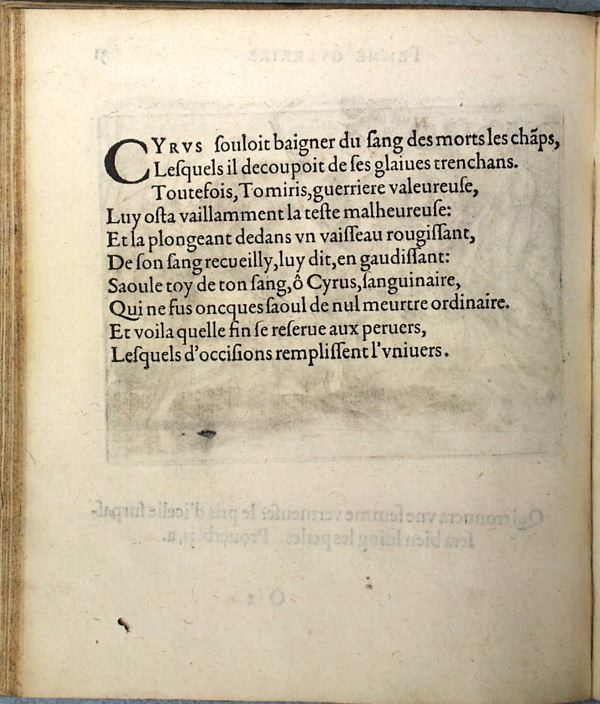 CYRVS ſouloit baigner du ſang des morts les chãps,
Leſquels il decoupoit de ſes glaiues trenchans.
Toutefois, Tomiris, guerriere valeureuſe,
Luy oſta vaillamment la teſte malheureuſe:
Et la plongeant dedans vn vaiſſeau rougiſſant,
De ſon ſang recueilly, luy dit, en gaudiſſant:
Saoule toy de ton ſang, ô Cyrus, ſanguinaire,
Qui ne fus oncques ſaoul de nul meurtre ordinaire.
Et voila quelle fin ſe reſerue aux peruers,
Leſquels d'occiſions rempliſſent l'vniuers.